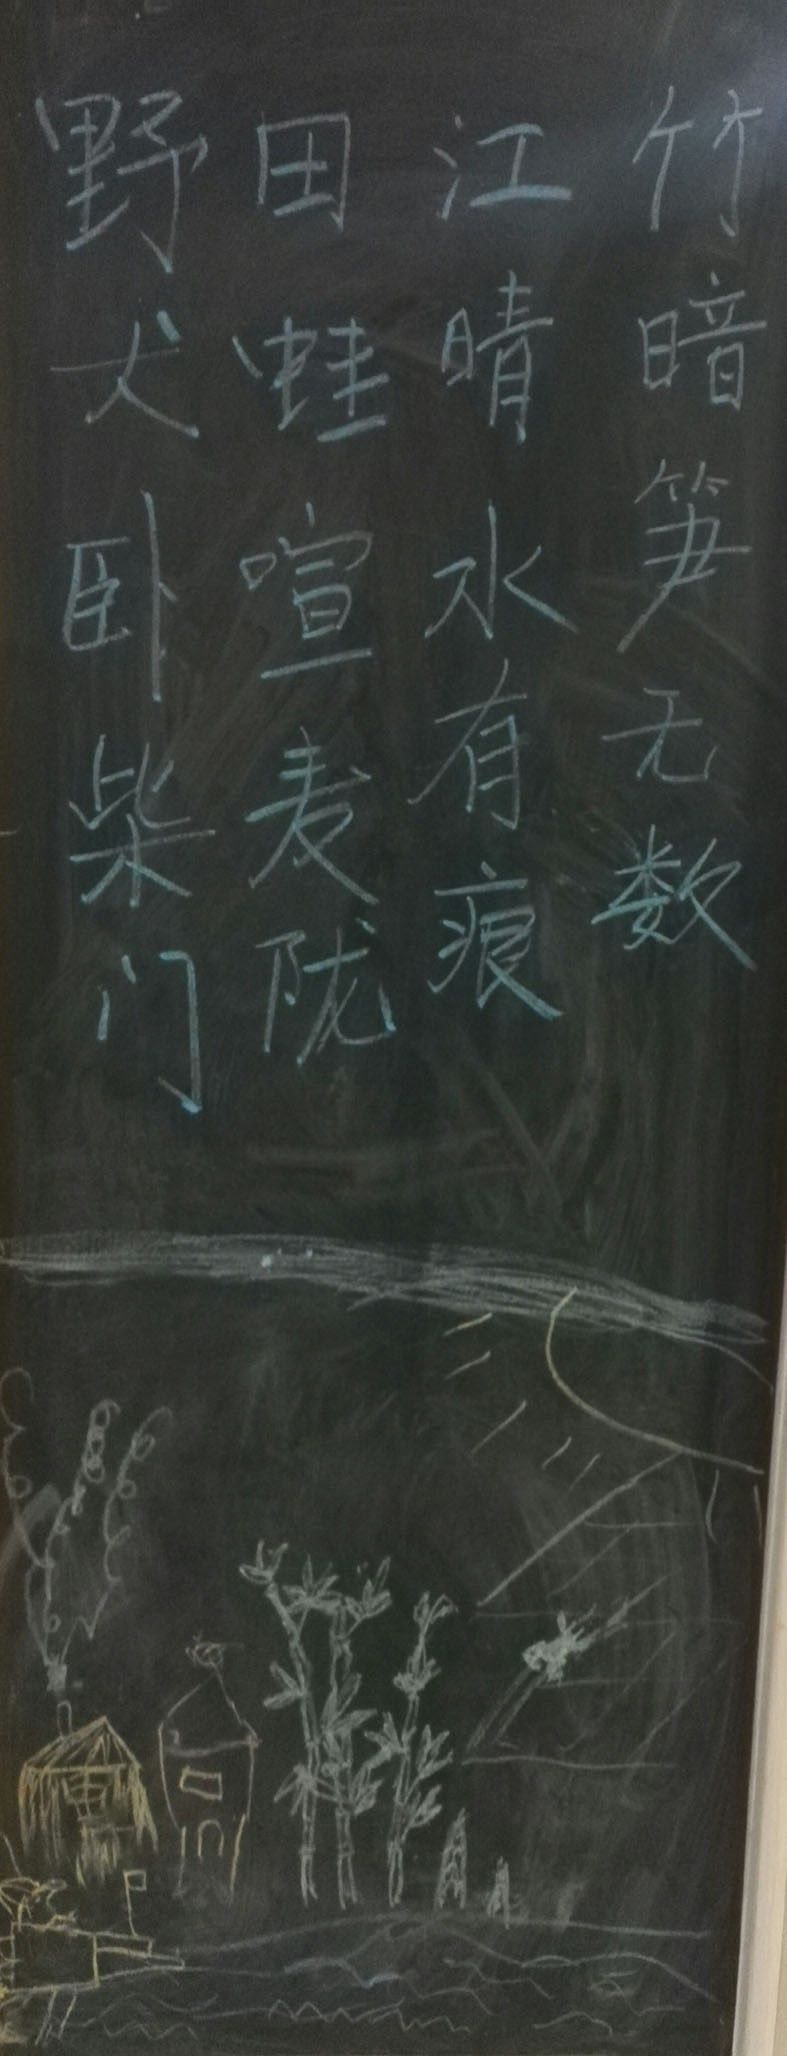 竹暗笋无数
江晴水有痕
田蛙喧麦陇
野犬卧柴门